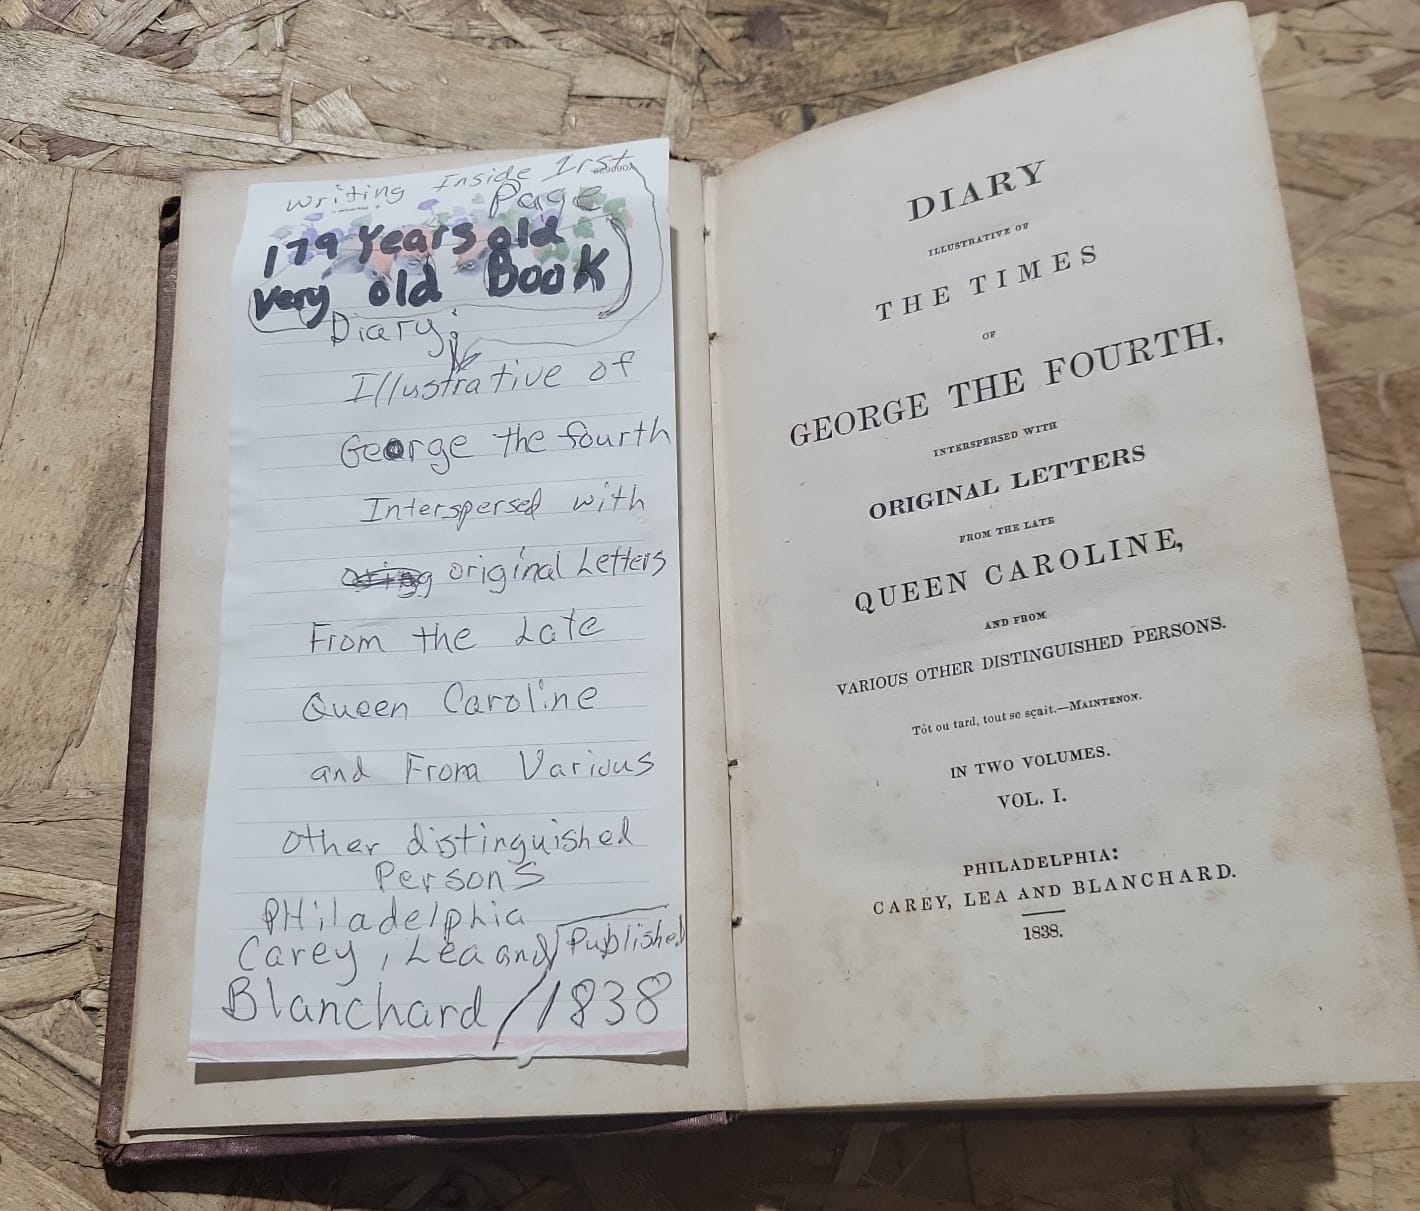 Writing Inside 1rst
Page
179 Years old
Very old Book
Diary;
Illustrative of
George the fourth
Interspersed with
original Letters
From the Late
Queen Caroline
and From Various
other distinguished
Persons
PHiladelphia
Carey, Lea and Published
Blanchard / 1838
DIARY
ILLUSTRATIVE OF
THE TIMES
OF
GEORGE THE FOURTH,
INTERSPERSED WITH
ORIGINAL LETTERS
FROM THE LATE
QUEEN CAROLINE,
AND FROM
VARIOUS OTHER DISTINGUISHED PERSONS.
Tôt ou tard, tout se sçait.—MAINTENON.
IN TWO VOLUMES.
VOL. I.
PHILADELPHIA:
CAREY, LEA AND BLANCHARD.
1838.